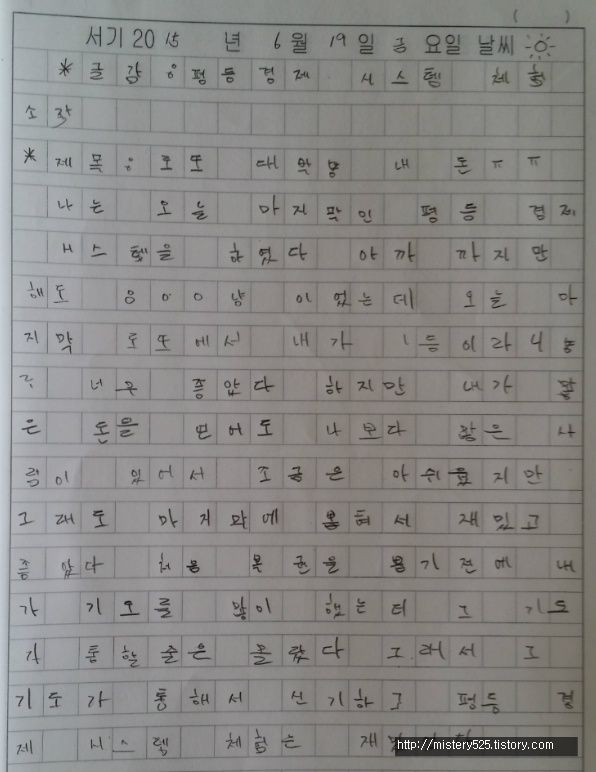 ( )
서기 2015 년 6월 19일 금요일 날씨
* 글감 : 평등경제 시스템 체험
소감
* 제목 : 로또 대박 내 돈 ㅠㅠ
나는 오늘 마지막인 평등 경제
시스템을 하였다 아까 까지만
해도 이였는데 오늘 마
지막 로또에서 내가 1등이라니
너무 좋았다 하지만 내가 많
은 돈을 받어도 나보다 많은 사
람이 있어서 조금은 아쉬웠지만
그래도 마지막에 서 재밌고
좋았다 처음 복권을 뽑기전에 내
가 기도를 많이 했는데 그 기도
가 통할줄은 몰랐다 그래서 그
기도가 통해서 신기하고 평등 경
제 시스템 체험은
http://mistery525.tistory.com